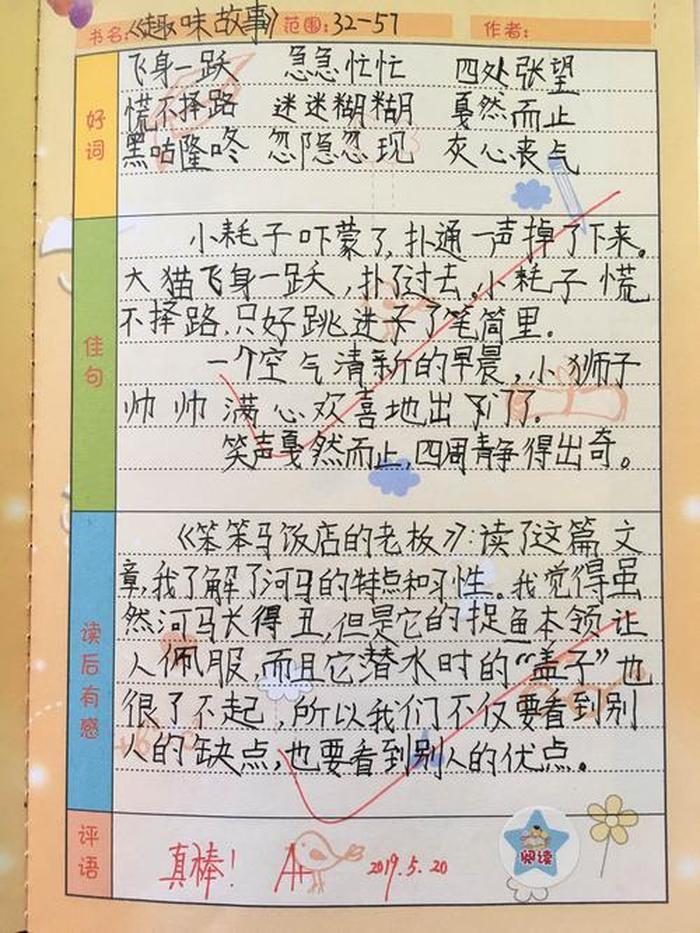 书名:《趣味故事》 范围:32-57 作者:
好词
飞身一跃 急急忙忙 四处张望
慌不择路 迷迷糊糊 戛然而止
黑咕隆咚 忽隐忽现 灰心丧气
佳句
小耗子吓蒙了,扑通一声掉了下来。
大猫飞身一跃,扑了过去。小耗子慌
不择路,只好跳进了笔筒里。
一个空气清新的早晨,小狮子
帅帅满心欢喜地出门了。
笑声戛然而止,四周静得出奇。
读后有感
《笨笨马饭店的老板》:读了这篇文
章,我了解了河马的特点和习性。我觉得虽
然河马长得丑,但是它的捉鱼本领让
人佩服,而且它潜水时的“盖子”也
很了不起,所以我们不仅要看到别
人的缺点,也要看到别人的优点。
评语
真棒! A+ 2019.5.20
阅读